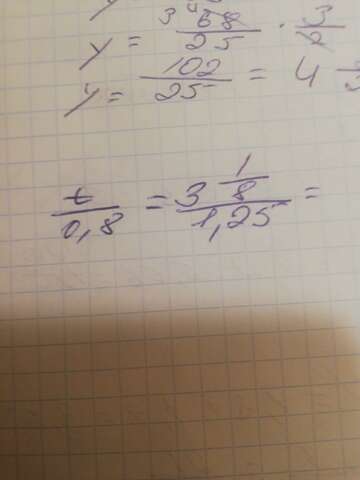 y =
3 68/25 · 3/2
y = 102/25 = 4
t/0,8 = 3 1/8 / 1,25 =